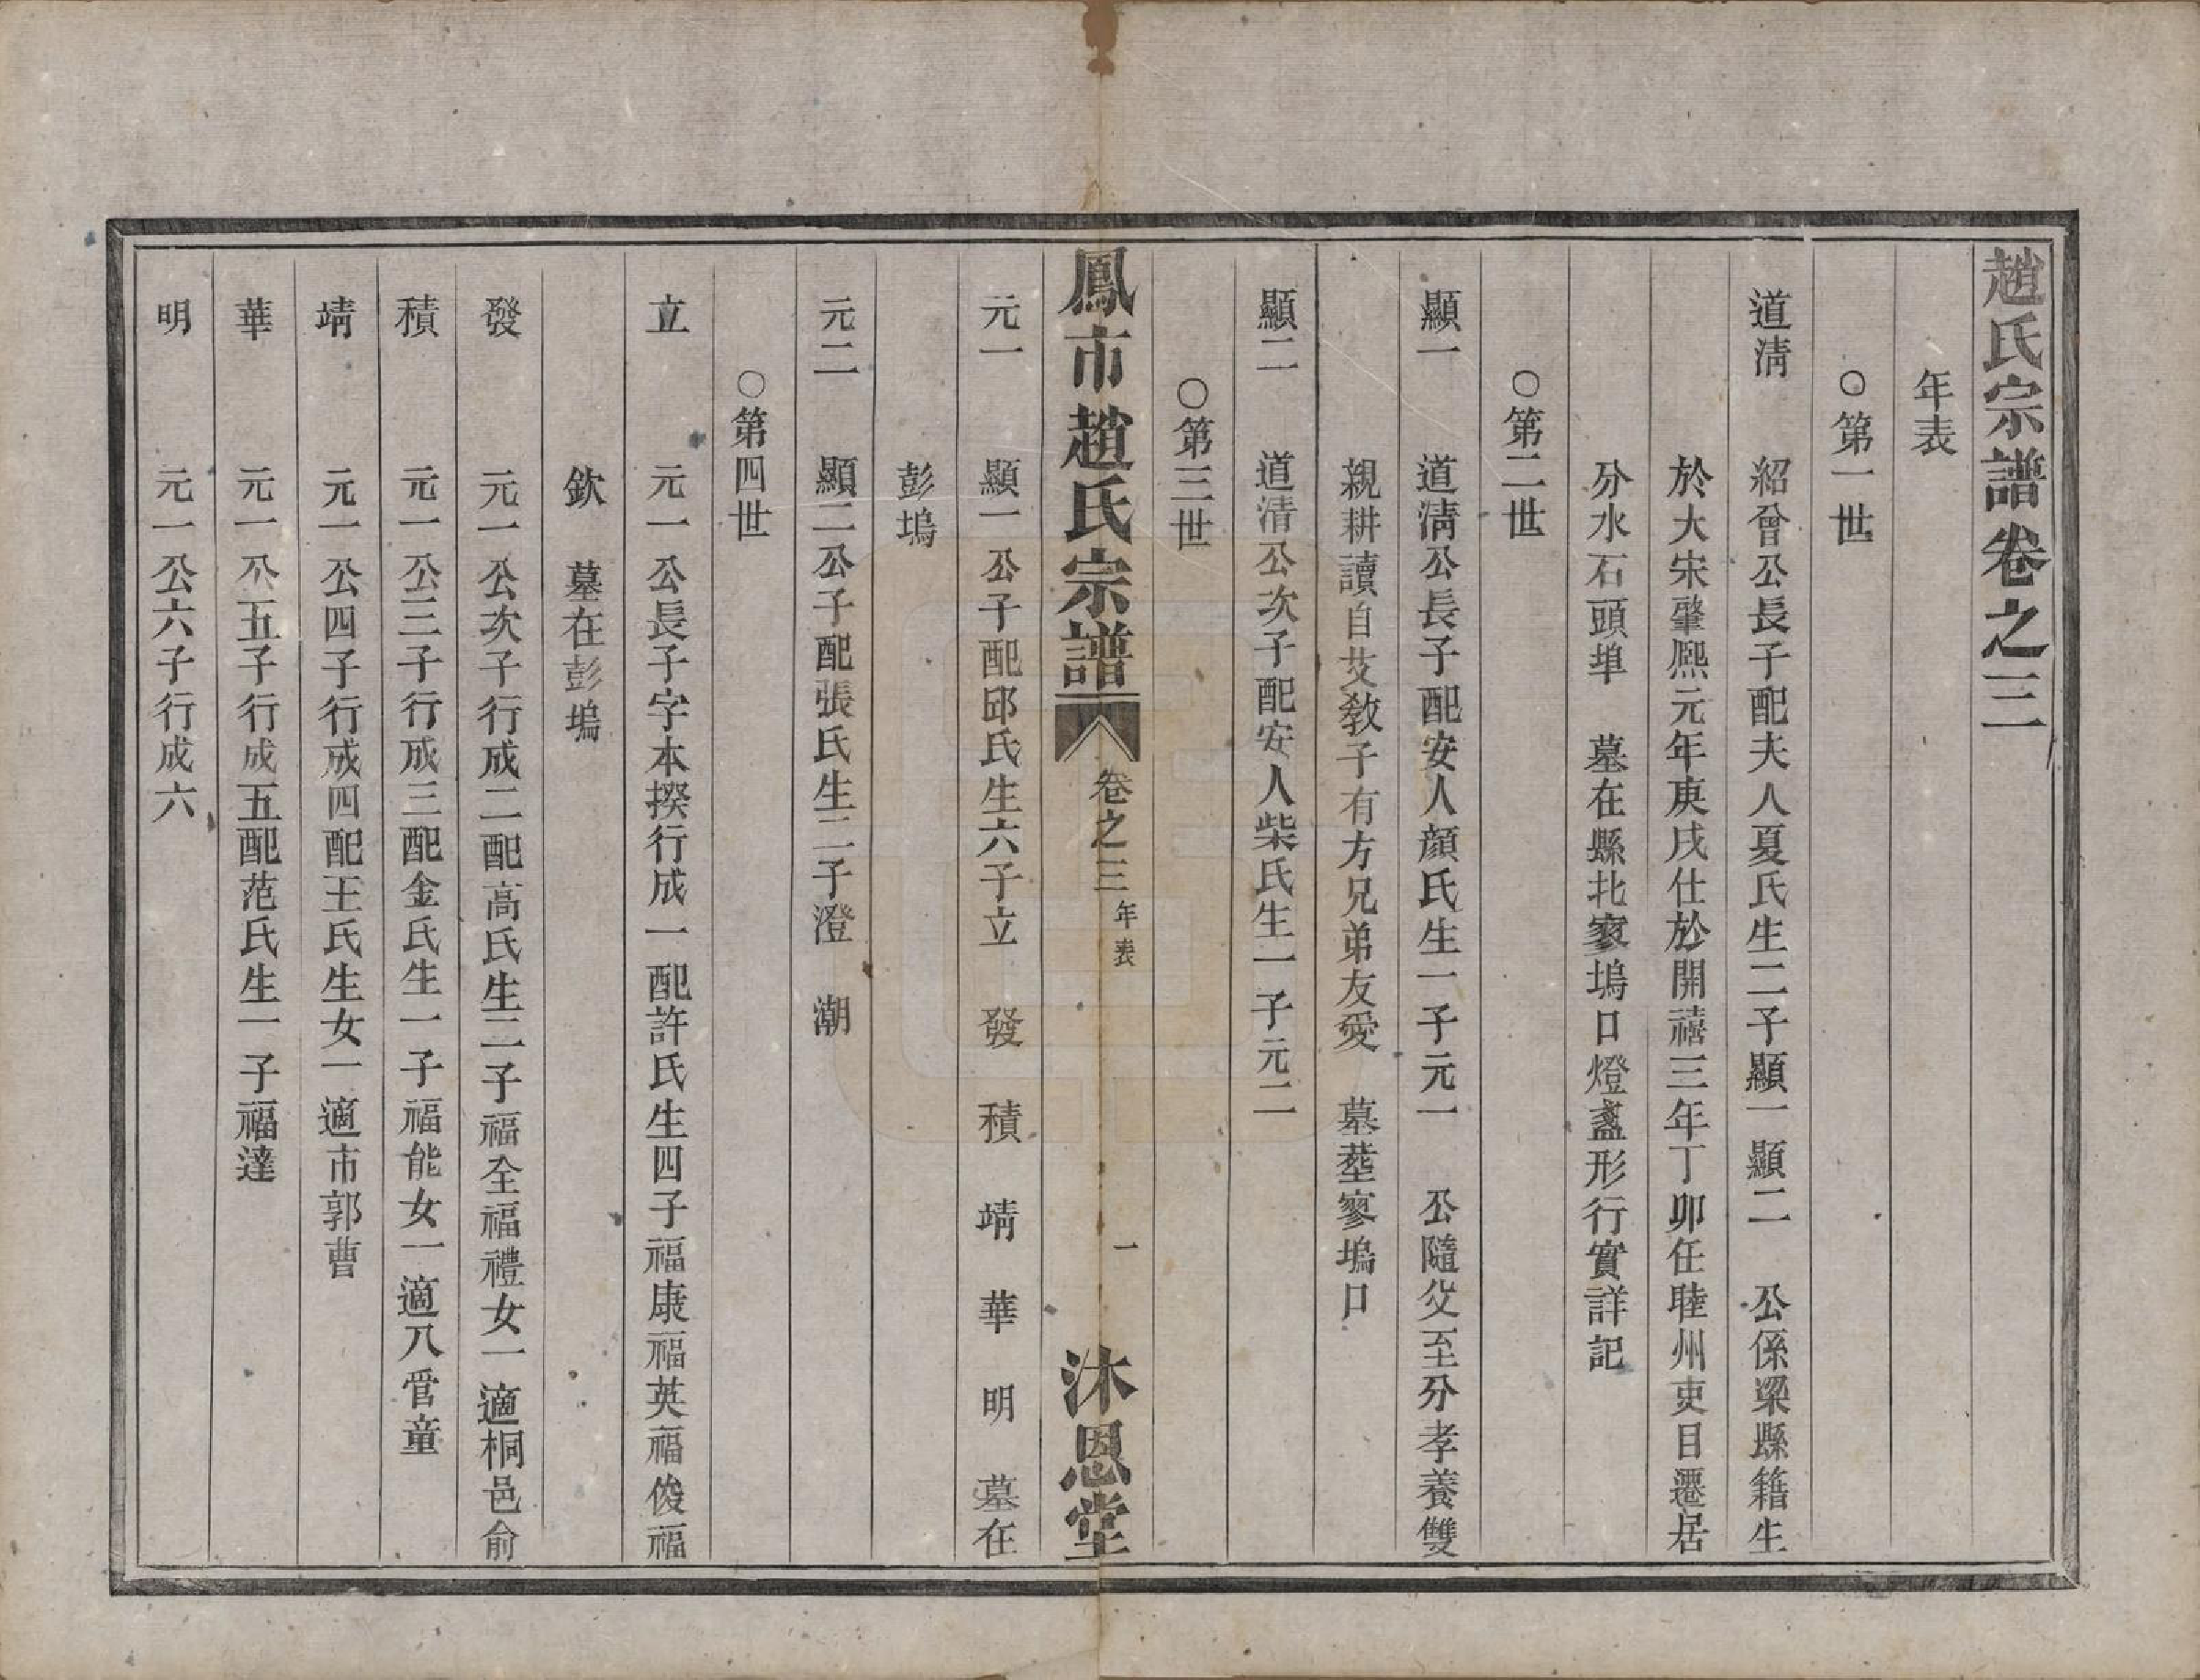 趙氏宗譜卷之三
年表
○第一世
道淸　紹曾公長子配夫人夏氏生二子顯一顯二　公係梁縣籍生
於大宋肇熙元年庚戌仕於開禧三年丁卯任睦州吏目遷居
分水石頭埠　墓在縣北寥塢口燈盞形行實詳記
○第二世
顯一　道淸公長子配安人顔氏生一子元一　公隨父至分孝養雙
親耕讀自艾敎子有方兄弟友愛　墓塟寥塢口
顯二　道清公次子配安人柴氏生一子元二
○第三世
鳳市趙氏宗譜　卷之三　年表　一　沐恩堂
元一　顯一公子配邱氏生六子立　發　積　靖　華　明　墓在
彭塢
元二　顯二公子配張氏生二子澄　潮
○第四世
立　元一公長子字本揆行成一配許氏生四子福康福英福俊福
欽　墓在彭塢
發　元一公次子行成二配高氏生二子福全福禮女一適桐邑俞
積　元一公三子行成三配金氏生一子福能女一適八管童
靖　元一公四子行成四配王氏生女一適市郭曹
華　元一公五子行成五配范氏生一子福達
明　元一公六子行成六